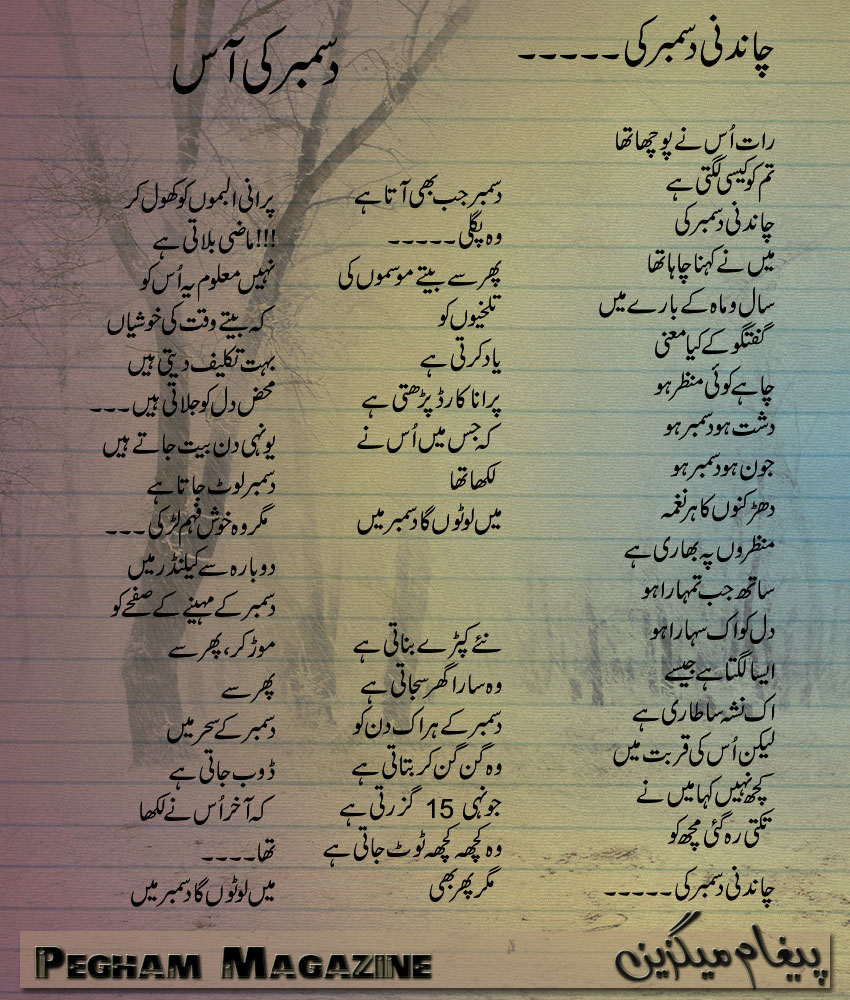 چاندنی دسمبر کی ۔۔۔۔۔
رات اُس نے پوچھا تھا
تم کو کیسی لگتی ہے
چاندنی دسمبر کی
میں نے کہنا چاہا تھا
سال و ماہ کے بارے میں
گفتگو کے کیا معنی
چاہے کوئی منظر ہو
دشت ہو دسمبر ہو
جون ہو دسمبر ہو
دھڑکنوں کا ہر نغمہ
منظروں پہ بھاری ہے
ساتھ جب تمہارا ہو
دل کو اک سہارا ہو
ایسا لگتا ہے جیسے
اک نشہ سا طاری ہے
لیکن اُس کی قربت میں
کچھ نہیں کہا میں نے
تکتی رہ گئی مجھ کو
چاندنی دسمبر کی ۔۔۔۔۔
دسمبر کی آس
دسمبر جب بھی آتا ہے
وہ پگلی ۔۔۔۔۔
پھر سے بیتے موسموں کی
تلخیوں کو
یاد کرتی ہے
پرانا کارڈ پڑھتی ہے
کہ جس میں اُس نے
لکھا تھا
میں لوٹوں گا دسمبر میں
نئے کپڑے بناتی ہے
وہ سارا گھر سجاتی ہے
دسمبر کے ہر اک دن کو
وہ گن گن کر بتاتی ہے
جونہی 15 گزرتی ہے
وہ کچھ کچھ ٹوٹ جاتی ہے
مگر پھر بھی
پرانی البموں کو کھول کر
ماضی بلاتی ہے!!!
نہیں معلوم یہ اُس کو
کہ بیتے وقت کی خوشیاں
بہت تکلیف دیتی ہیں
محض دل کو جلاتی ہیں ۔۔۔
یونہی دن بیت جاتے ہیں
دسمبر لوٹ جاتا ہے
مگر وہ خوش فہم لڑکی ۔۔۔
دوبارہ سے کیلنڈر میں
دسمبر کے مہینے کے صفحے کو
موڑ کر، پھر سے
پھر سے
دسمبر کے سحر میں
ڈوب جاتی ہے
کہ آخر اُس نے لکھا
تھا ۔۔۔۔
میں لوٹوں گا دسمبر میں
پیغام میگزین
Pegham Magazine